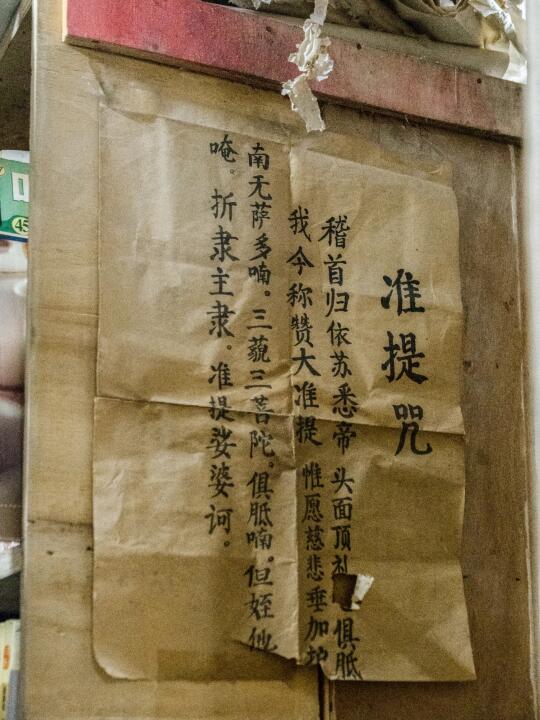 准提咒
稽首归依苏悉帝 头面顶礼 俱胝
我今称赞大准提 惟愿慈悲垂加护
南无萨多喃。三藐三菩陀。俱胝喃。但姪他
唵。折隶主隶。准提娑婆诃。
45